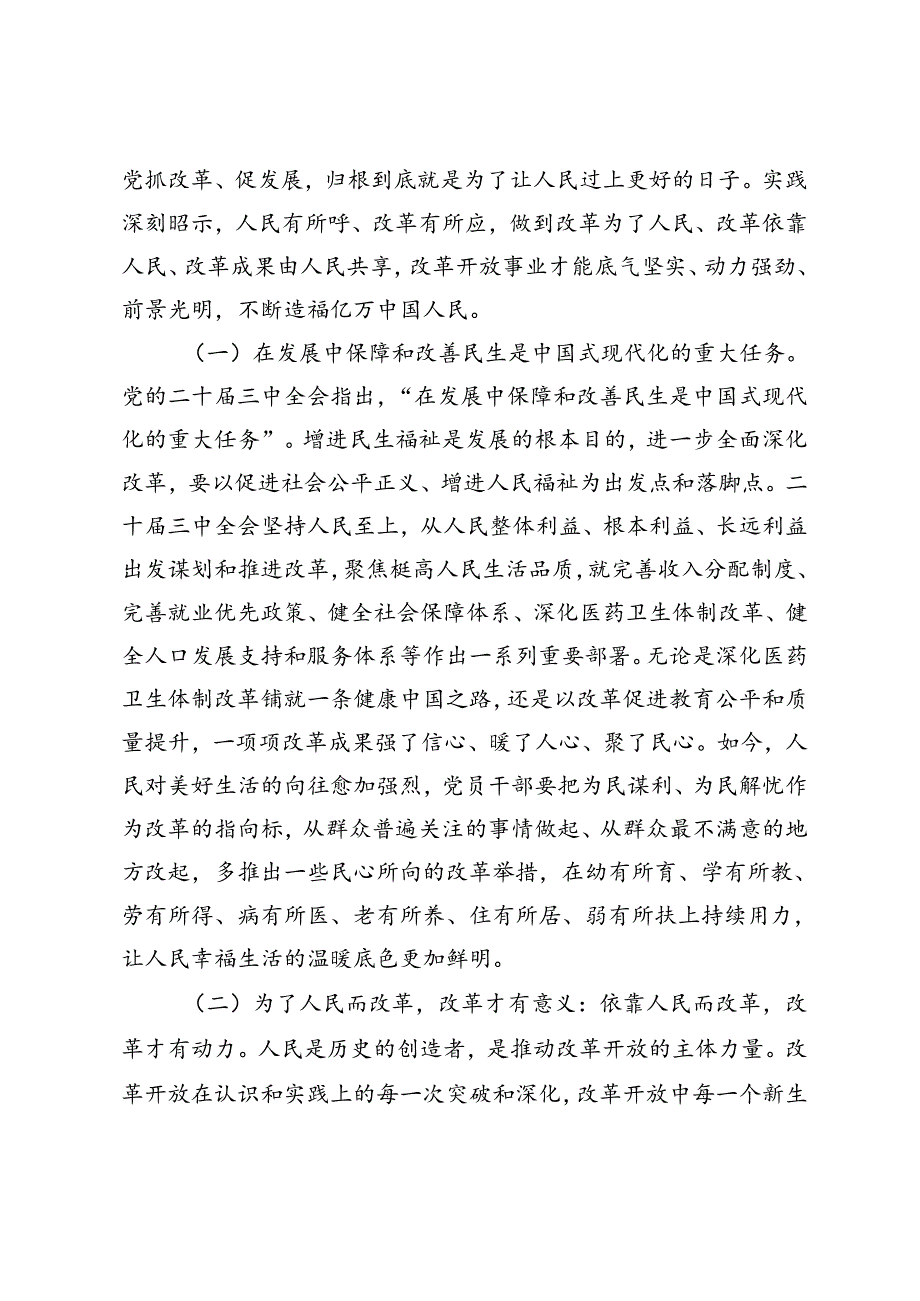 党抓改革、促发展，归根到底就是为了让人民过上更好的日子。实践
深刻昭示，人民有所呼、改革有所应，做到改革为了人民、改革依靠
人民、改革成果由人民共享，改革开放事业才能底气坚实、动力强劲、
前景光明，不断造福亿万中国人民。
（一）在发展中保障和改善民生是中国式现代化的重大任务。
党的二十届三中全会指出，“在发展中保障和改善民生是中国式现代
化的重大任务”。增进民生福祉是发展的根本目的，进一步全面深化
改革，要以促进社会公平正义、增进人民福祉为出发点和落脚点。二
十届三中全会坚持人民至上，从人民整体利益、根本利益、长远利益
出发谋划和推进改革，聚焦梃高人民生活品质，就完善收入分配制度、
完善就业优先政策、健全社会保障体系、深化医药卫生体制改革、健
全人口发展支持和服务体系等作出一系列重要部署。无论是深化医药
卫生体制改革铺就一条健康中国之路，还是以改革促进教育公平和质
量提升，一项项改革成果强了信心、暖了人心、聚了民心。如今，人
民对美好生活的向往愈加强烈，党员干部要把为民谋利、为民解忧作
为改革的指向标，从群众普遍关注的事情做起、从群众最不满意的地
方改起，多推出一些民心所向的改革举措，在幼有所育、学有所教、
劳有所得、病有所医、老有所养、住有所居、弱有所扶上持续用力，
让人民幸福生活的温暖底色更加鲜明。
（二）为了人民而改革，改革才有意义：依靠人民而改革，改
革才有动力。人民是历史的创造者，是推动改革开放的主体力量。改
革开放在认识和实践上的每一次突破和深化，改革开放中每一个新生